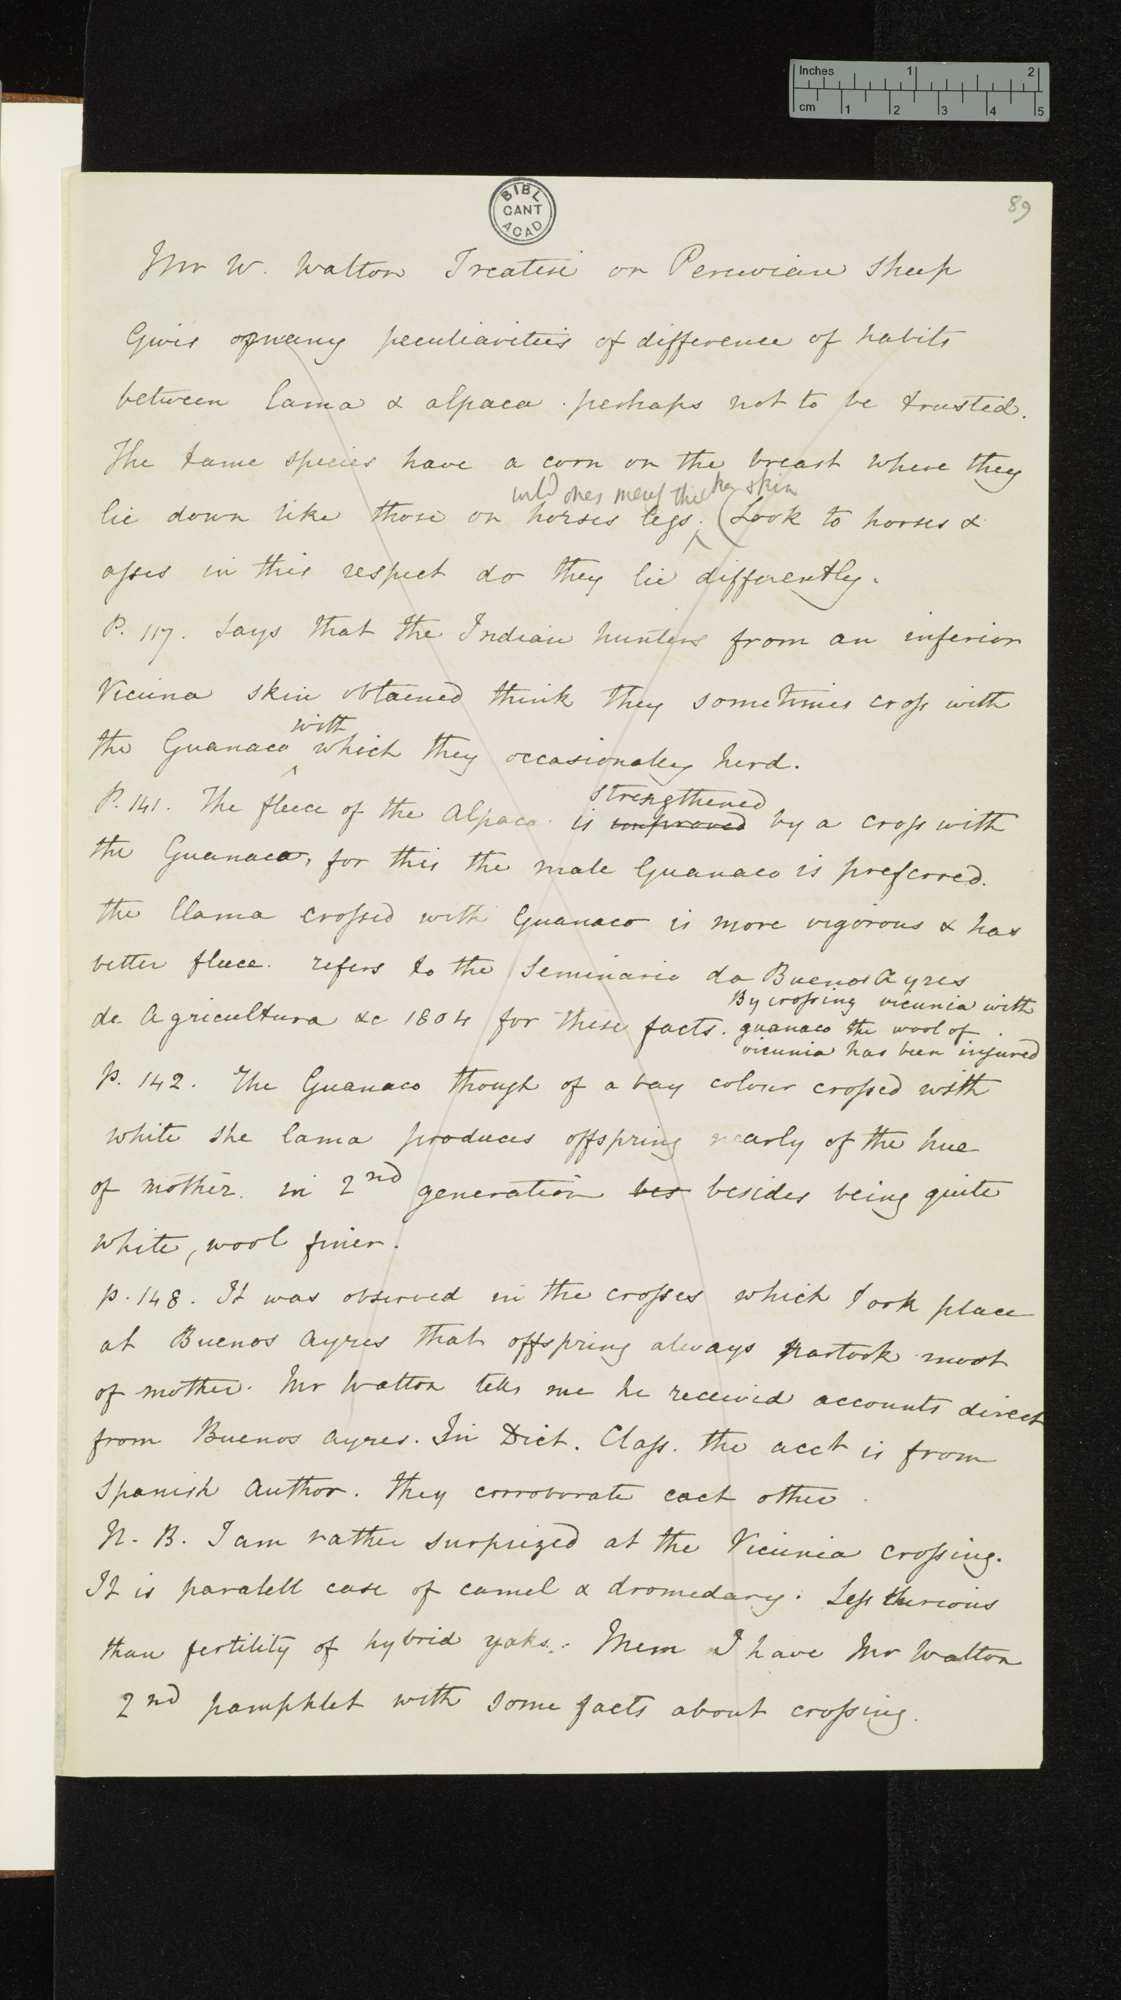 Inches 1 2
cm 1 2 3 4 5
BIBL
CANT
ACAD
89
Mr W. Walton Treatise on Peruvian Sheep
Gives many peculiarities of difference of habits
between lama & alpaca . perhaps not to be trusted.
The tame species have a corn on the breast where they
wild ones merely thicker skin
lie down like those on horses legs. (Look to horses &
asses in this respect do they lie differently.
P. 117. Says that the Indian hunters from an inferior
Vicuna skin obtained think they sometimes cross with
with
the Guanaco which they occasionally herd.
strengthened
P. 141. The fleece of the Alpaca is improved by a cross with
the Guanaco, for this the male Guanaco is preferred.
the llama crossed with Guanaco is more vigorous & has
better fleece. refers to the Seminario da Buenos Ayres
de Agricultura &c 1804 for these facts.
By crossing vicunia with
guanaco the wool of
vicunia has been injured
p. 142. The Guanaco though of a bay colour crossed with
white she lama produces offspring nearly of the hue
of mother. in 2nd generation bes besides being quite
white, wool finer.
p. 148. It was observed in the crosses which took place
at Buenos Ayres that offspring always partook most
of mother. Mr Walton tells me he received accounts direct
from Buenos Ayres. In Dict. Class. the acct is from
Spanish Author. They corroborate each other.
N. B. I am rather surprized at the Vicunia crossing.
It is paralell case of camel & dromedary. Less
than fertility of hybrid yaks.: Mem I have Mr Walton
2nd pamphlet with some facts about crossing.